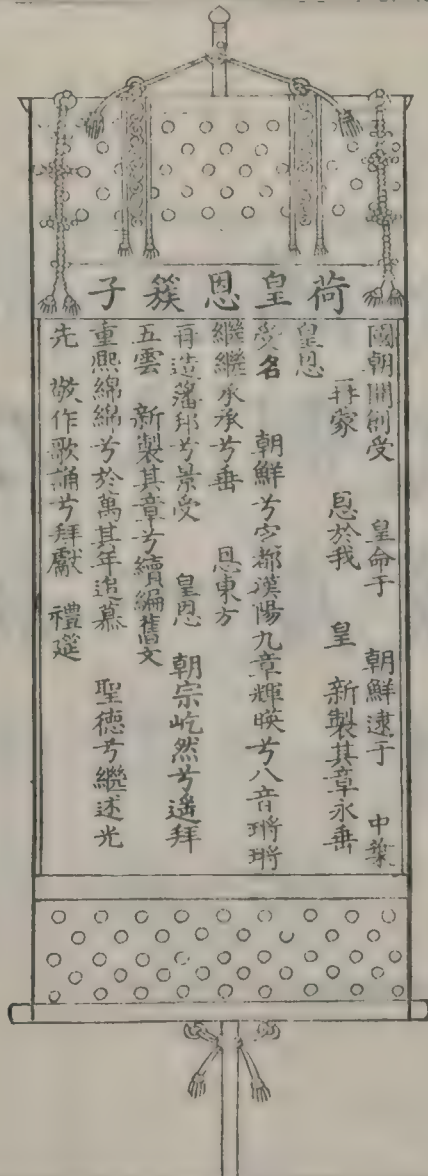 荷皇恩簇子
國朝開創受 皇命于 朝鮮逮于 中葉
再蒙 恩於我 皇 新製其章永垂
皇恩
受名 朝鮮兮定都漢陽九章輝暎兮八音瑲瑲
繼繼承承兮垂 恩東方
再造藩邦兮景受 皇恩 朝宗屹然兮遙拜
五雲 新製其章兮續編舊文
重熙綿綿兮於萬其年追慕 聖德兮繼述光
先 敬作歌誦兮拜獻 禮筵